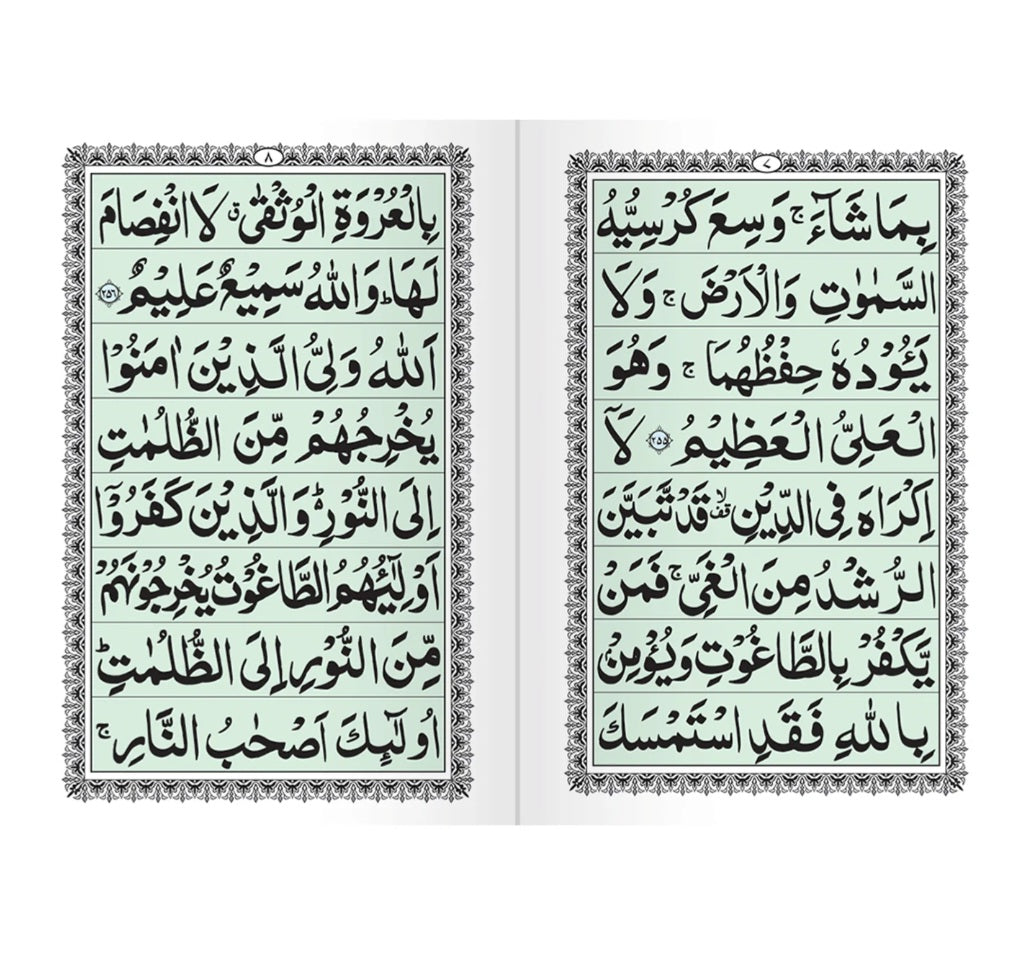 ٧
بِمَا شَآءَ ۚ وَسِعَ كُرْسِيُّهُ
السَّمٰوٰتِ وَالْاَرْضَ ۚ وَلَا
يَـُٔوْدُهٗ حِفْظُهُمَا ۚ وَهُوَ
الْعَلِىُّ الْعَظِيْمُ ﴿٢٥٥﴾ لَآ
اِكْرَاهَ فِى الدِّيْنِ ۙ قف قَدْ تَّبَيَّنَ
الرُّشْدُ مِنَ الْغَىِّ ۚ فَمَنْ
يَّكْفُرْ بِالطَّاغُوْتِ وَيُؤْمِنْۢ
بِاللّٰهِ فَقَدِ اسْتَمْسَكَ
٨
بِالْعُرْوَةِ الْوُثْقٰى ق لَا انْفِصَامَ
لَهَا ؕ وَاللّٰهُ سَمِيْعٌ عَلِيْمٌ ﴿٢٥٦﴾
اَللّٰهُ وَلِىُّ الَّذِيْنَ اٰمَنُوْا
يُخْرِجُهُمْ مِّنَ الظُّلُمٰتِ
اِلَى النُّوْرِ ؕ وَالَّذِيْنَ كَفَرُوْٓا
اَوْلِيٰٓـُٔهُمُ الطَّاغُوْتُ يُخْرِجُوْنَهُمْ
مِّنَ النُّوْرِ اِلَى الظُّلُمٰتِ ؕ
اُولٰٓئِكَ اَصْحٰبُ النَّارِ ۚ